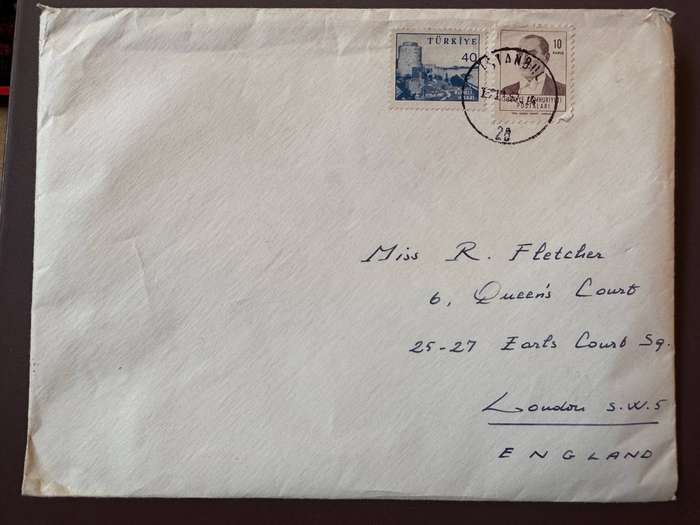 TÜRKİYE
40
10
İSTANBUL
28
CUMHURİYETİ
POSTALARI
Miss R. Fletcher
6, Queen's Court
25-27 Earls Court Sq.
London S.W.5
ENGLAND